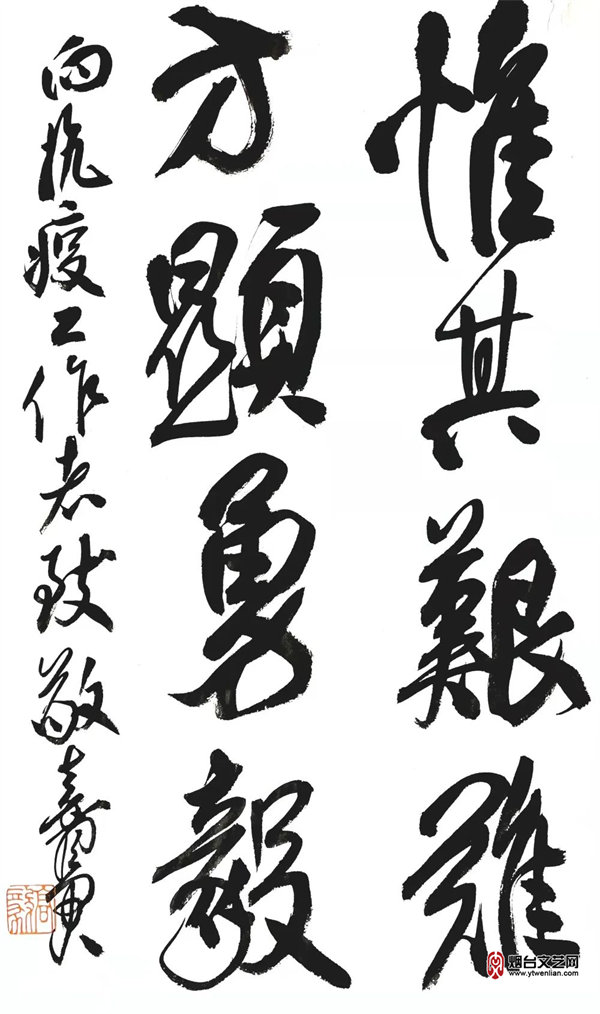 惟其艱難
方顯勇毅
向抗疫工作者致敬
烟台文艺网
www.ytwenlian.com